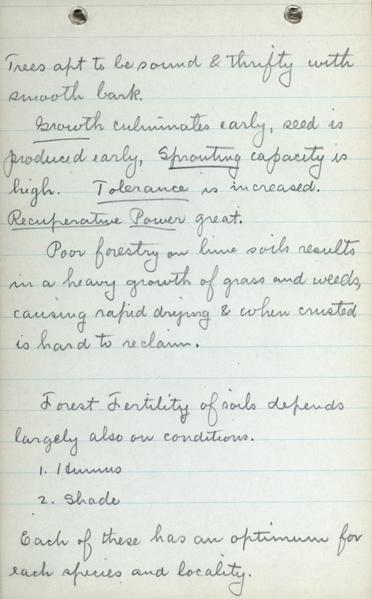 Trees apt to be sound & thrifty with
smooth bark.
Growth culminates early, seed is
produced early, Sprouting capacity is
high. Tolerance is increased.
Recuperative Power great.
Poor forestry on lime soils results
in a heavy growth of grass and weeds,
causing rapid drying & when crusted
is hard to reclaim.
Forest Fertility of soils depends
largely also on conditions.
1. Humus
2. Shade
Each of these has an optimum for
each species and locality.